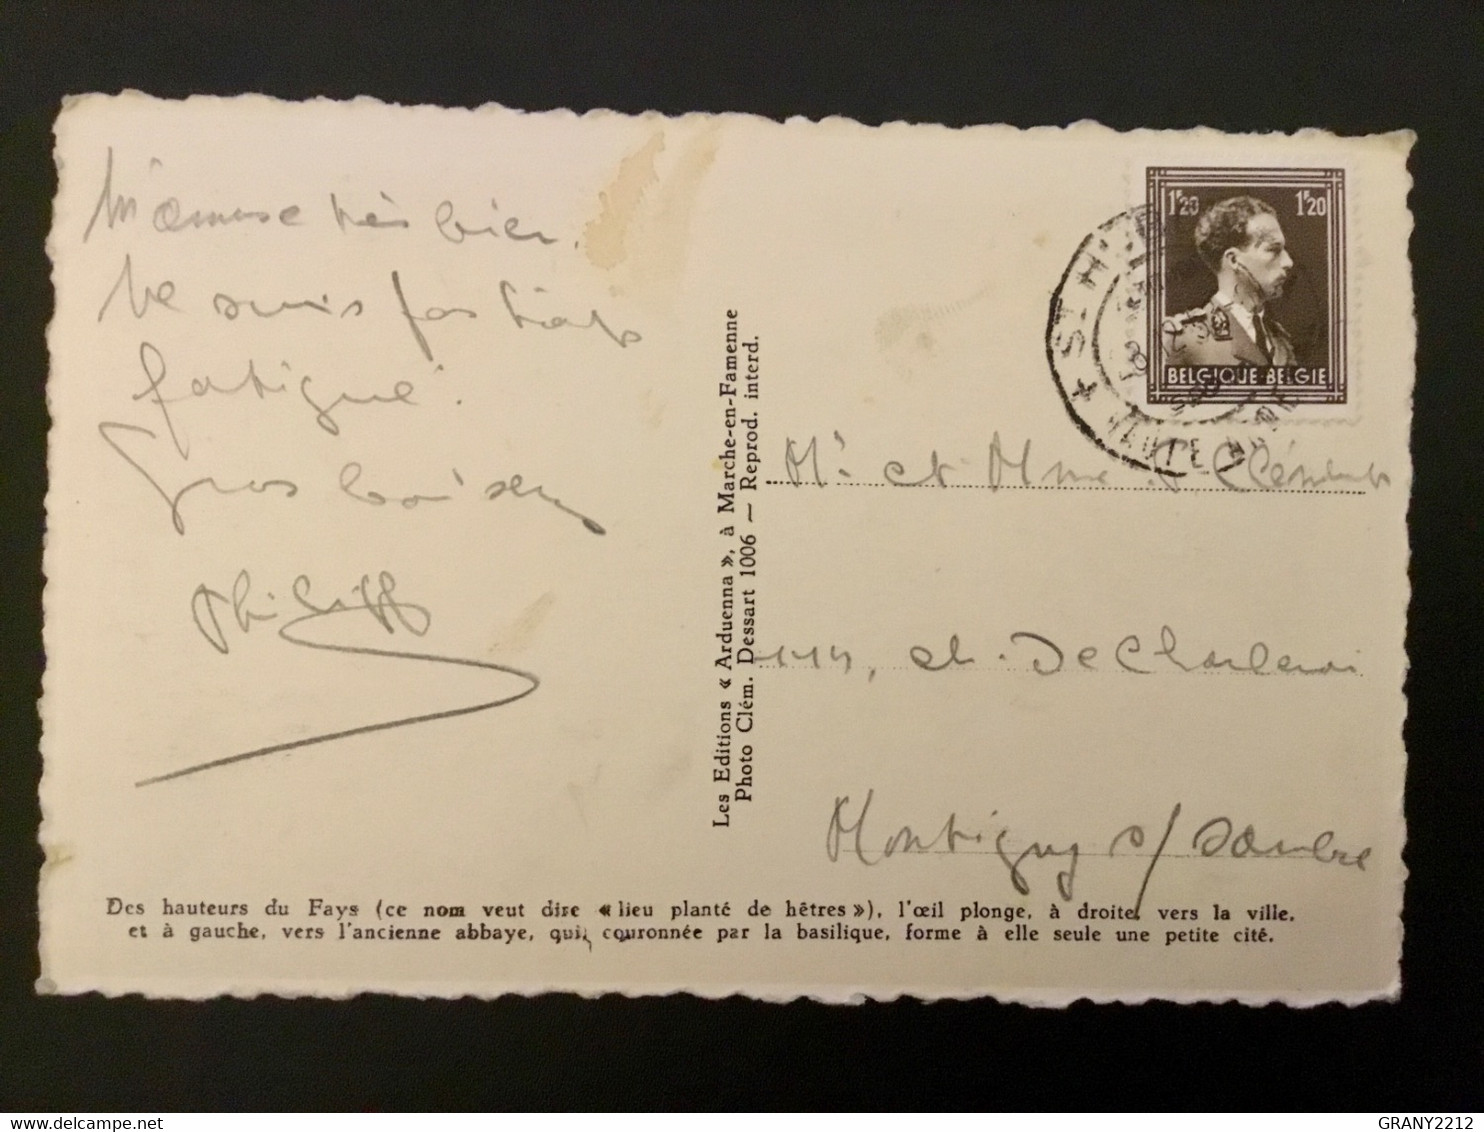 M'amuse très bien.
Ne suis pas trop
fatigué.
Gros baisers
Philippe
Les Editions « Arduenna », à Marche-en-Famenne
Photo Clém. Dessart 1006 — Reprod. interd.
1F20 1F20
BELGIQUE-BELGIE
ST H
Mr et Mme Clément
ch. De Charleroi
Montigny s/ Sambre
Des hauteurs du Fays (ce nom veut dire « lieu planté de hêtres »), l'œil plonge, à droite, vers la ville,
et à gauche, vers l'ancienne abbaye, qui, couronnée par la basilique, forme à elle seule une petite cité.
delcampe.net
GRANY2212